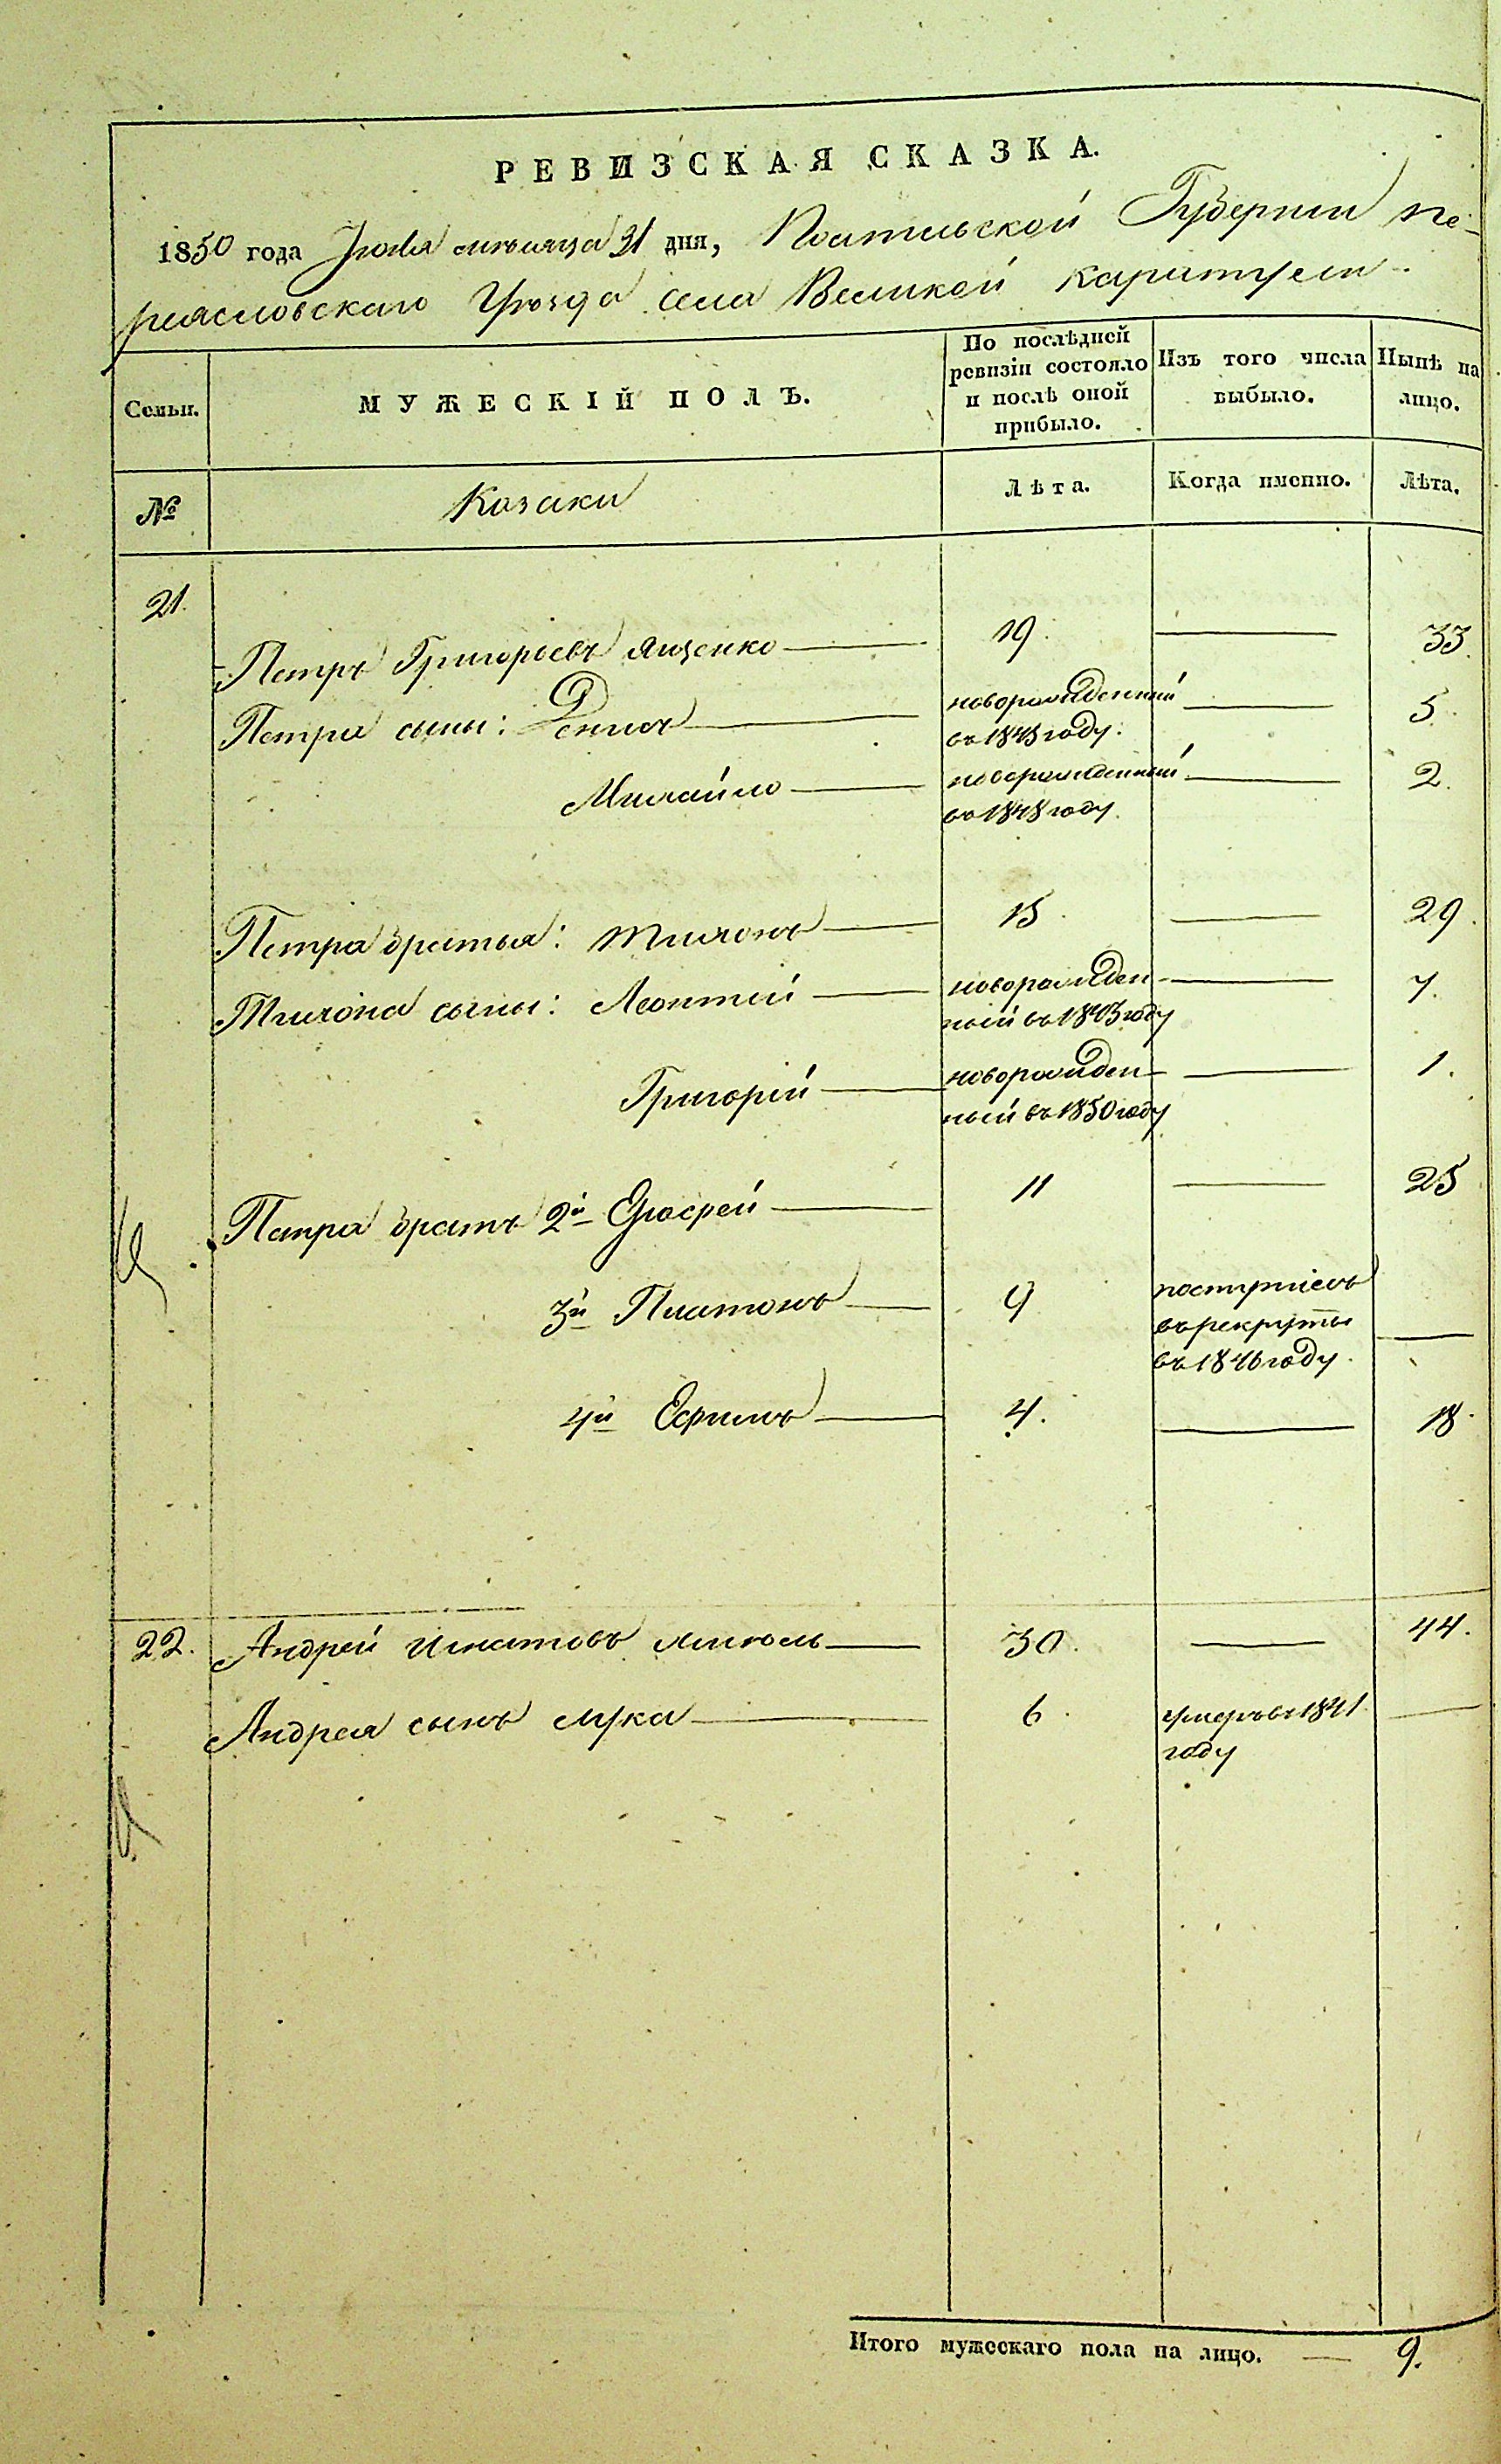 РЕВИЗСКАЯ СКАЗКА.
1850 года Іюля мѣсяца 31 дня, Полтавской Губерніи Пе-
реясловскаго Уѣзда села Великой Каратули
Семьи.
МУЖЕСКІЙ ПОЛЪ.
По послѣдней
ревизіи состояло
и послѣ оной
прибыло.
Изъ того числа
выбыло.
Нынѣ на
лицо.
№
Козаки
Лѣта.
Когда именно.
Лѣта.
21.
Петръ Григорьевъ Ященко 19. 33.
Петра сыны: Денисъ новорожденный 5.
въ 1845 году.
Михайло новорожденный 2.
въ 1848 году.
Петра братья: Тихонъ 15. 29.
Тихона сыны: Леонтій новорожден- 7.
ный въ 1843 году
Григорій новорожден- 1.
ный въ 1850 году
Петра братъ 2й Евсфей 11 25
3й Платонъ 9 поступилъ
въ рекруты
въ 1846 году.
4й Ефимъ 4. 18.
22. Андрей Игнатовъ 30. 44.
Андрея сынъ Лука 6. умеръ въ 1841
году
Итого мужескаго пола на лицо. — 9.